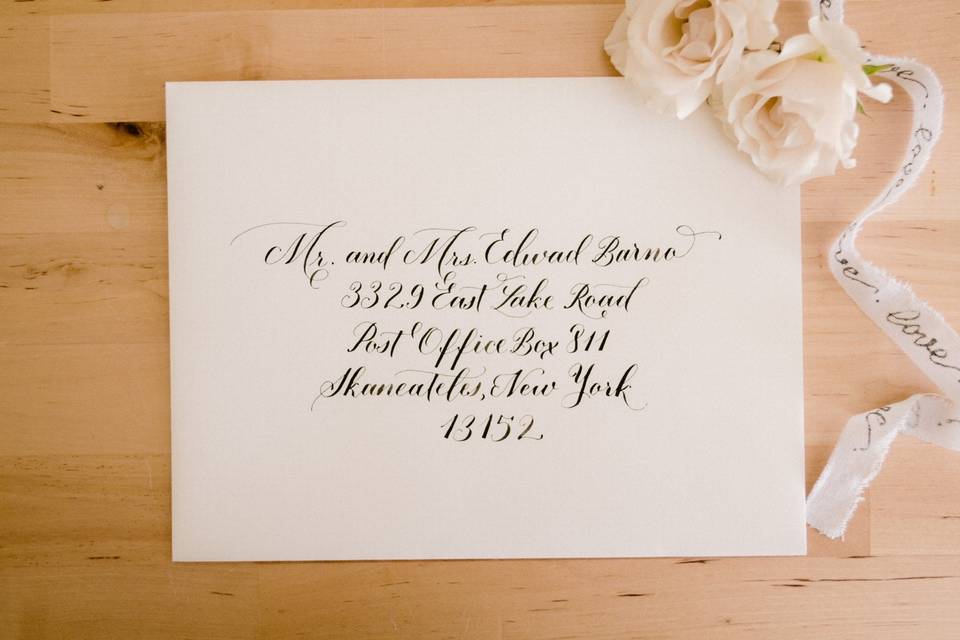 Mr. and Mrs. Edwad Barno
3329 East Lake Road
Post Office Box 811
Skaneateles, New York
13152
love
love
love